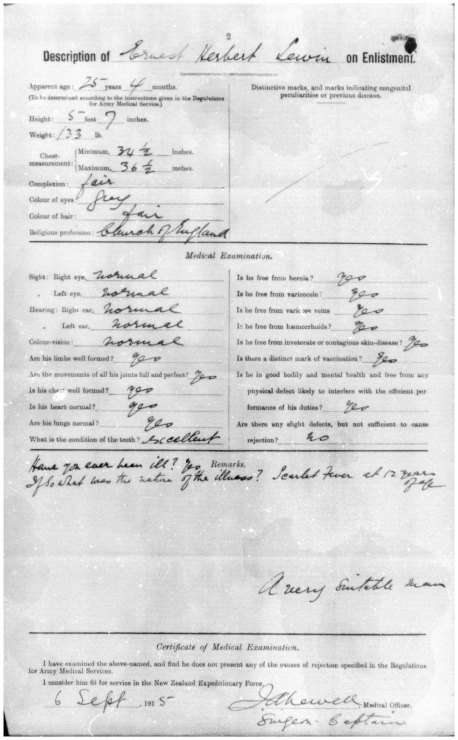 2
Description of Ernest Herbert Lewin on Enlistment.
Apparent age: 25 years 4 months.
(To be determined according to the instructions given in the Regulations
for Army Medical Service.)
Height: 5 feet 7 inches.
Weight: 133 lb.
Chest-measurement: Minimum, 34 1/2 inches.
Maximum, 36 1/2 inches.
Complexion: fair
Colour of eyes: grey
Colour of hair: fair
Religious profession: Church of England
Distinctive marks, and marks indicating congenital
peculiarities or previous disease.
Medical Examination.
Sight: Right eye, normal
" Left eye, normal
Hearing: Right ear, normal
" Left ear, normal
Colour-vision: normal
Are his limbs well formed? Yes
Are the movements of all his joints full and perfect? Yes
Is his chest well formed? yes
Is his heart normal? yes
Are his lungs normal? Yes
What is the condition of the teeth? Excellent
Is he free from hernia? Yes
Is he free from varicocele? Yes
Is he free from varicose veins Yes
Is he free from hæmorrhoids? Yes
Is he free from inveterate or contagious skin-disease? Yes
Is there a distinct mark of vaccination? Yes
Is he in good bodily and mental health and free from any
physical defect likely to interfere with the efficient per-
formance of his duties? Yes
Are there any slight defects, but not sufficient to cause
rejection? no
Remarks.
Have you ever been ill? Yes
If So what was the nature of the illness? Scarlet Fever at 12 years
of age
A very suitable man
Certificate of Medical Examination.
I have examined the above-named, and find he does not present any of the causes of rejection specified in the Regulations
for Army Medical Services.
I consider him fit for service in the New Zealand Expeditionary Force.
6 Sept, 1915
Medical Officer.
Surgeon-Captain